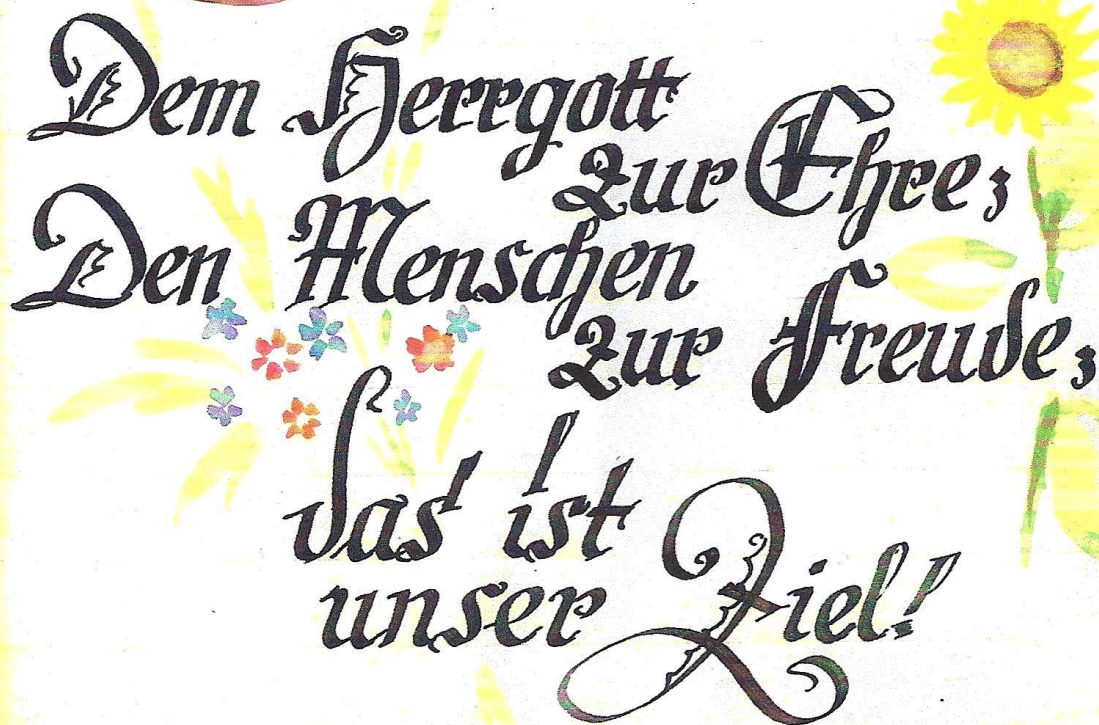 Dem Herrgott
zur Ehre;
Den Menschen
zur Freude;
das ist
unser Ziel!